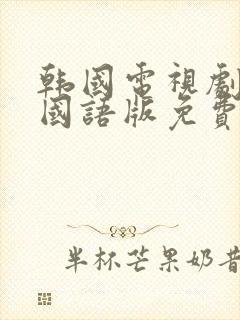 韩國電視劇
國語版免費
半杯芒果奶昔